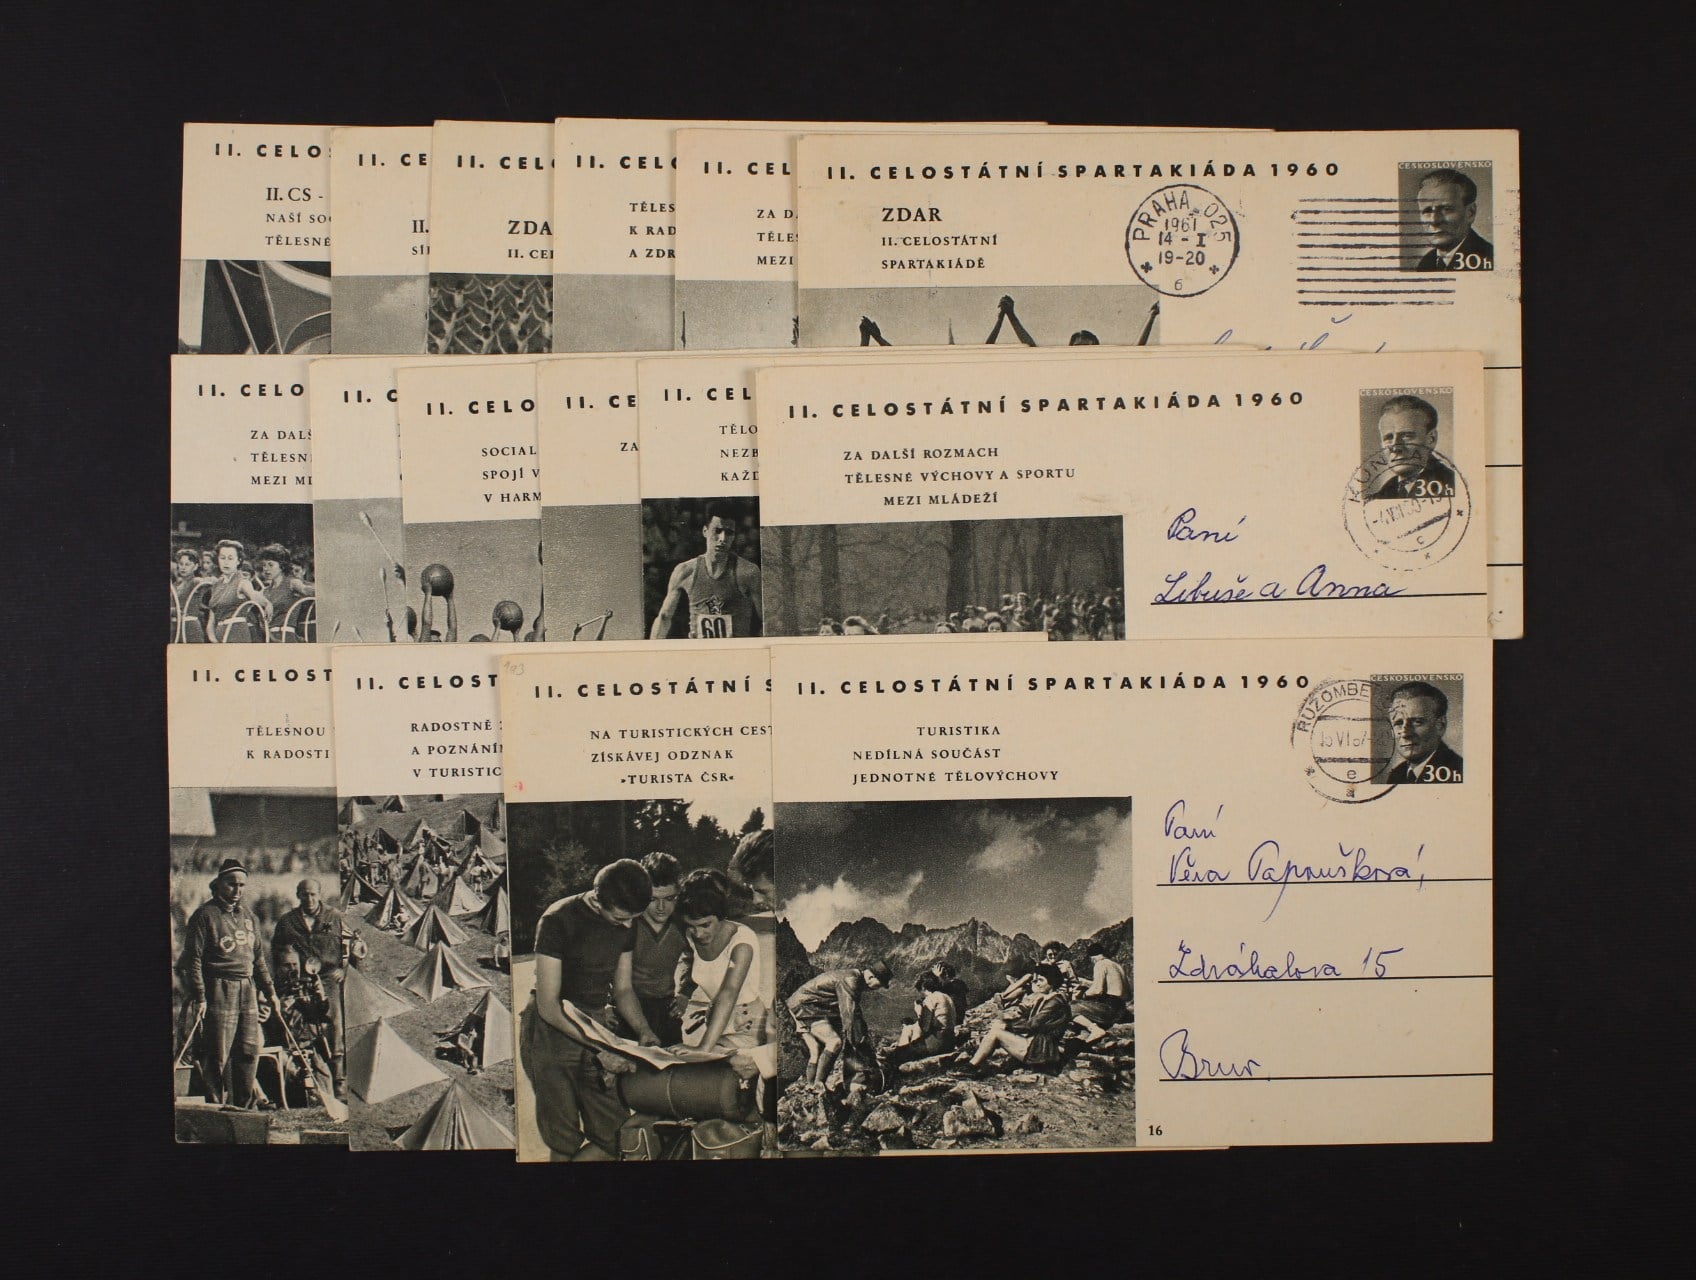 II. CELO
II. CS -
NAŠÍ SO
TĚLESNÉ
II. CE
II.
SÍ
II. CEL
ZDA
II. CE
II. CEL
TĚLES
K RAD
A ZDR
II. CEL
ZA D
TĚLE
MEZI
II. CELOSTÁTNÍ SPARTAKIÁDA 1960
ZDAR
II. CELOSTÁTNÍ
SPARTAKIÁDĚ
PRAHA 025
1961
14 - I
19-20
6
ČESKOSLOVENSKO
30h
II. CELO
ZA DALŠ
TĚLESN
MEZI M
II. C
II. CELO
SOCIAL
SPOJÍ V
V HARM
II. CE
ZA
II. CEL
TĚLO
NEZB
KAŽD
60
II. CELOSTÁTNÍ SPARTAKIÁDA 1960
ZA DALŠÍ ROZMACH
TĚLESNÉ VÝCHOVY A SPORTU
MEZI MLÁDEŽÍ
ČESKOSLOVENSKO
30h
c
Paní
Libuše a Anna
II. CELOST
TĚLESNOU
K RADOSTI
ČSR
II. CELOST
RADOSTNĚ
A POZNÁN
V TURISTIC
193
II. CELOSTÁTNÍ S
NA TURISTICKÝCH CEST
ZÍSKÁVEJ ODZNAK
»TURISTA ČSR«
II. CELOSTÁTNÍ SPARTAKIÁDA 1960
TURISTIKA
NEDÍLNÁ SOUČÁST
JEDNOTNÉ TĚLOVÝCHOVY
RUŽOMBE
e
ČESKOSLOVENSKO
30h
Paní
Věra Tapoušková,
Zdráhalova 15
Brno
16